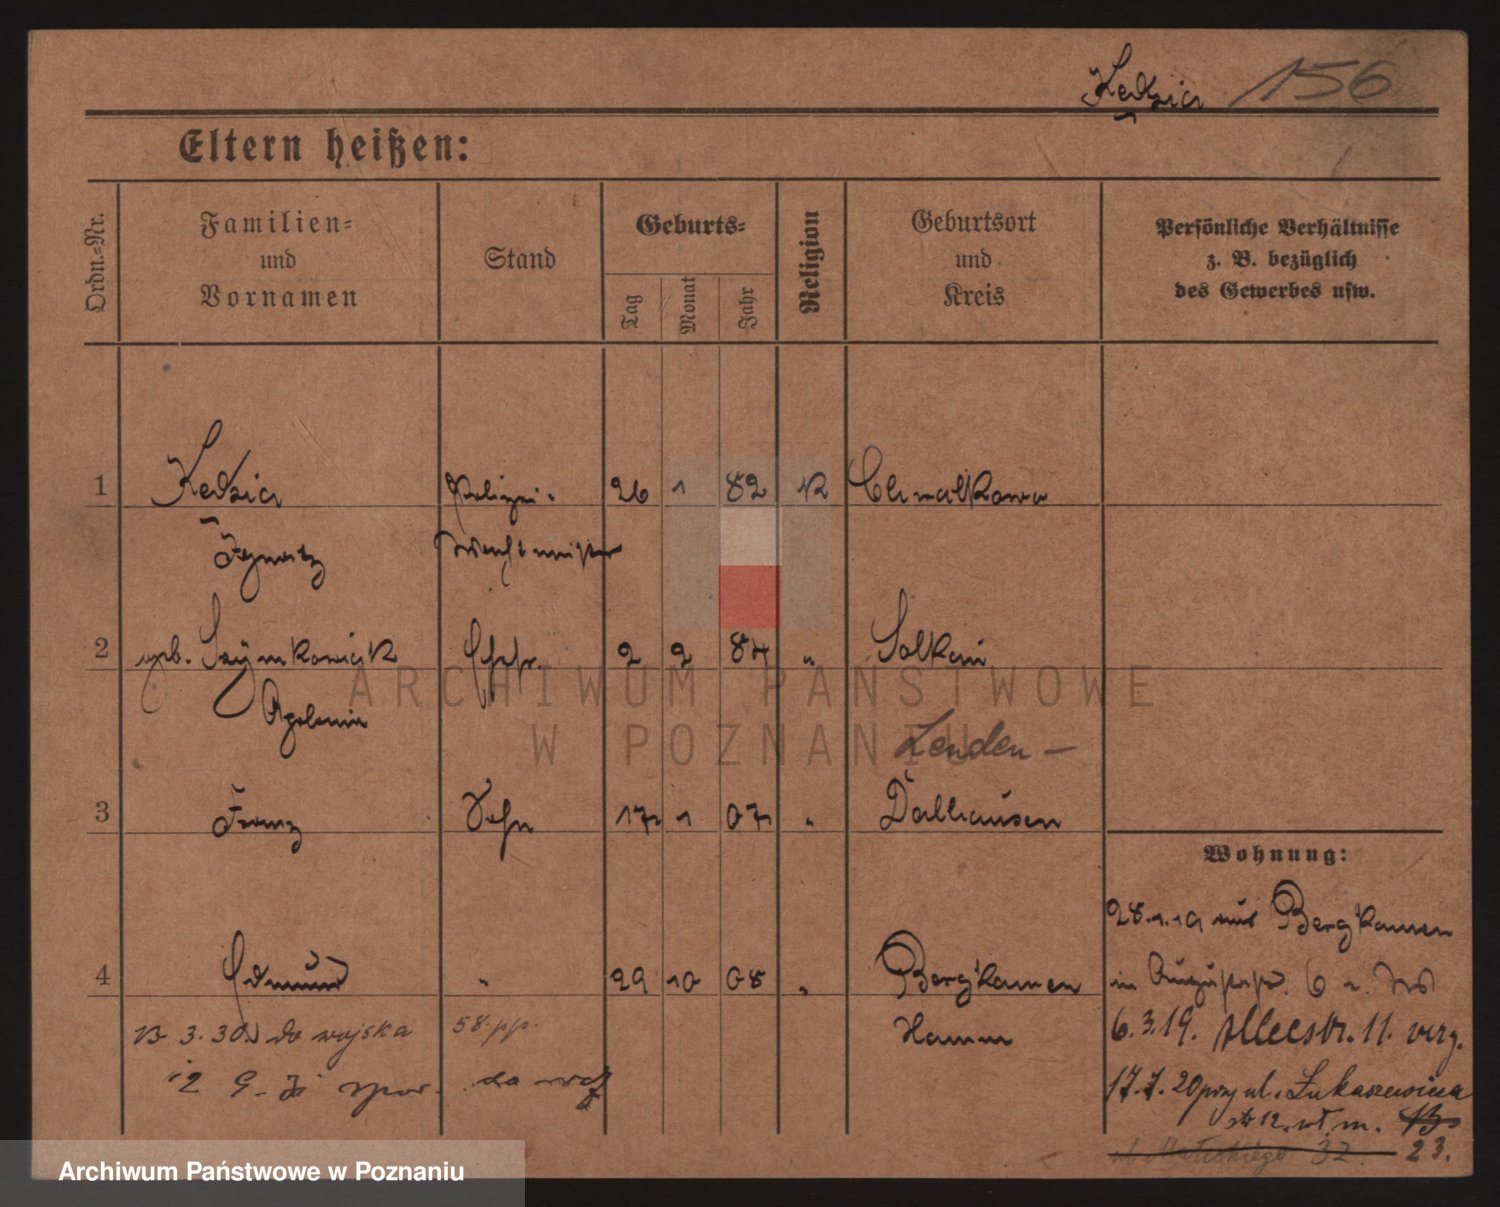 Kędzia 156
Eltern heißen:
Ordn.-Nr.
Familien-
und
Vornamen
Stand
Geburts-
Tag
Monat
Jahr
Religion
Geburtsort
und
Kreis
Persönliche Verhältnisse
z. B. bezüglich
des Gewerbes usw.
1 Kędzia Polizei- 26 1 82 K Chwalkowo
Ignatz Wachtmeister
2 geb. Szymkowiak Ehefr. 2 2 84 "
Apolonia
Lenden-
3 Franz Sohn 17 1 07 " Dalhausen
Wohnung:
28.1.19 aus Bergkamen
4 Edmund " 29 10 08 " Bergkamen
in Augustastr. 6
13.3.30 do wojska 58. pp. Hamm
6.3.19. Alleestr. 11.
17.7.20 przy ul. Łukaszewicza
12. m. 13
32. 23.
ARCHIWUM PAŃSTWOWE
W POZNANIU
Archiwum Państwowe w Poznaniu